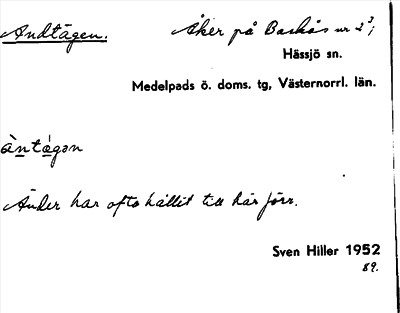 Andtägen. Åker på Backås nr 2³;
Hässjö sn.
Medelpads ö. doms. tg, Västernorrl. län.
àntágən
Änder har ofta hållit till här förr.
Sven Hiller 1952
89.